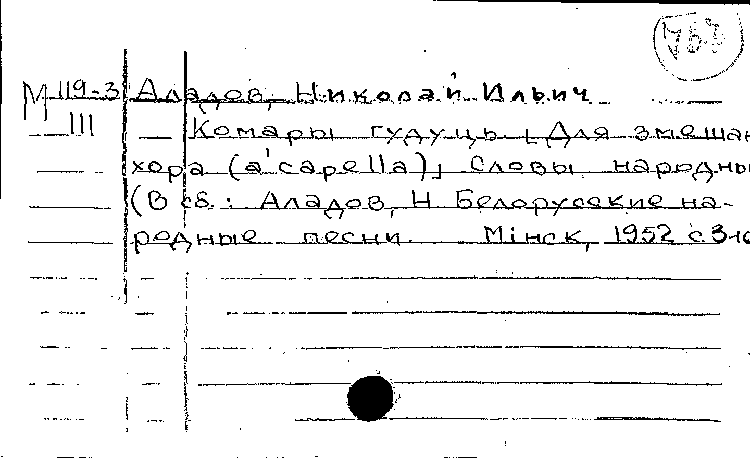 М 119-3 Аладов, Николай Ильич
III Комары гудуць. [Для змешан
хора (a'capella)] Словы народны
(В сб.: Аладов, Н. Белорусские на-
родные песни. Мінск, 1952 с. 3-10